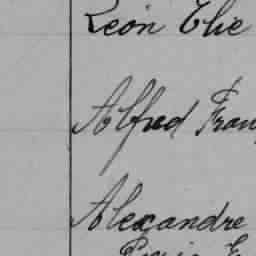 Léon Elie
Alfred Fran
Alexandre